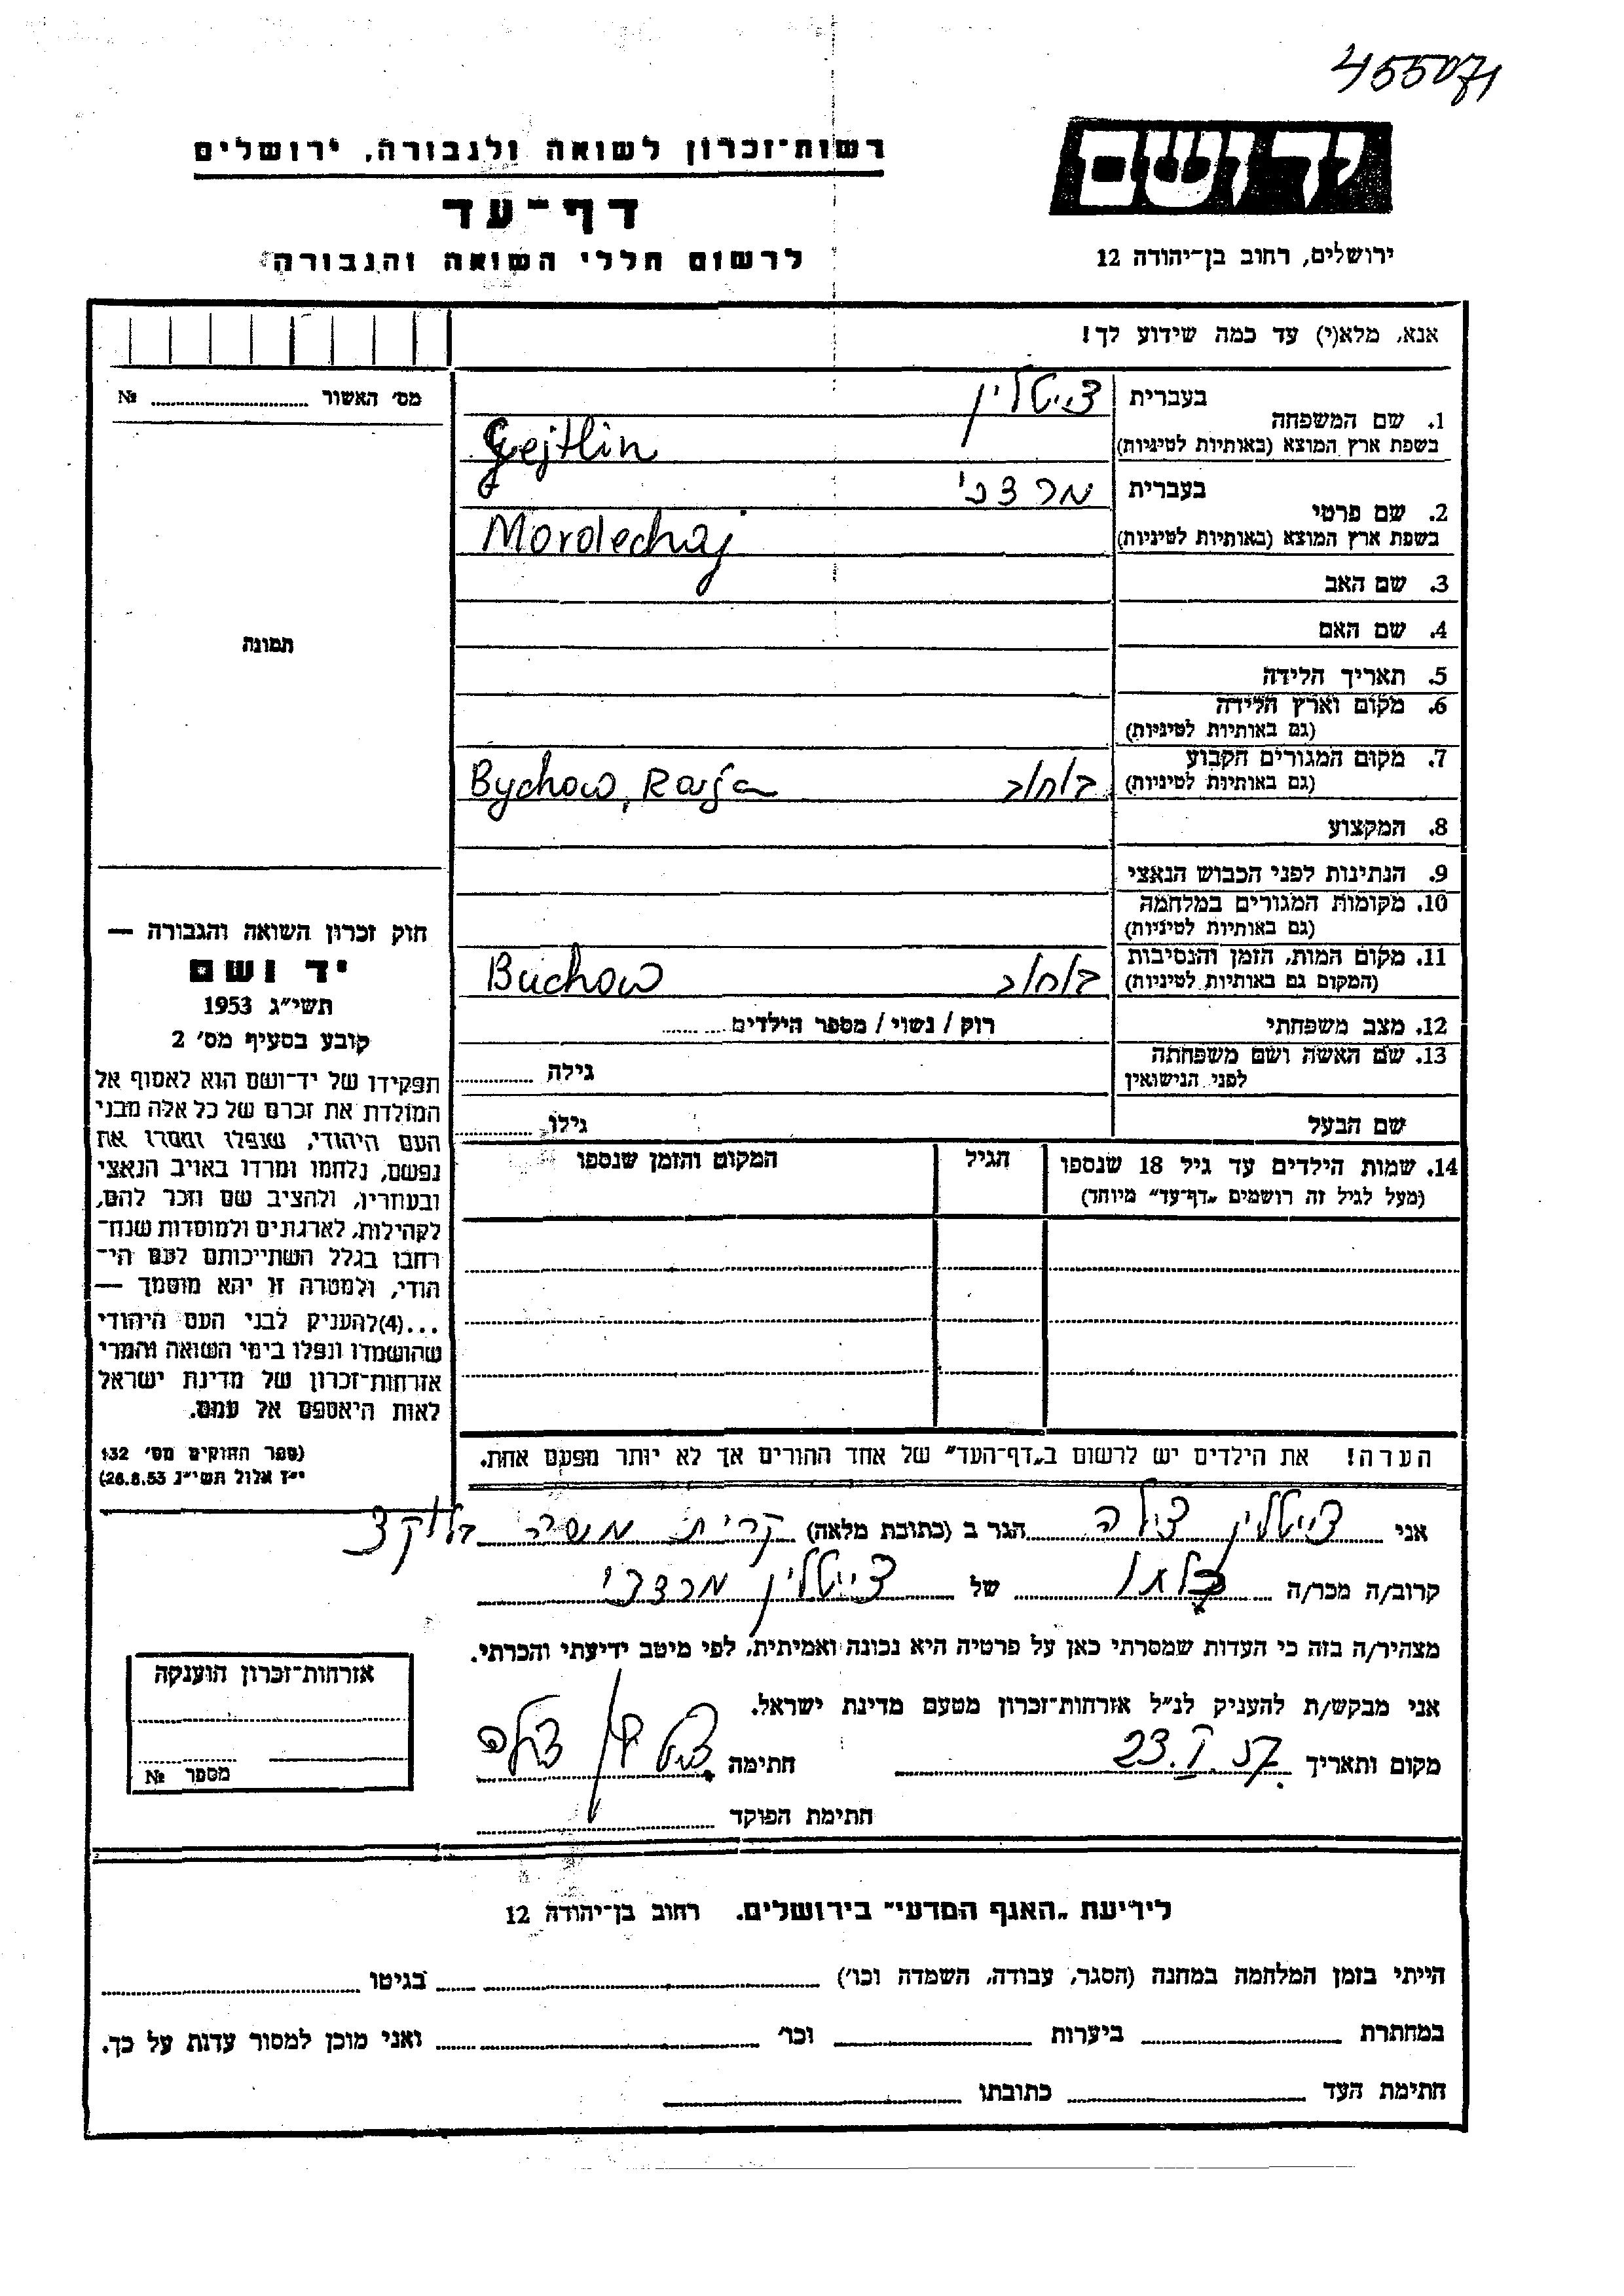 455071
רשות־זכרון לשואה ולגבורה, ירושלים
דף־עד
לרשום חללי השואה והגבורה
יד ושם
ירושלים, רחוב בן־יהודה 12
אנא, מלא(י) עד כמה שידוע לך!
מס׳ האשור № 
תמונה
1. שם המשפחה
בעברית צייטלין
בשפת ארץ המוצא (באותיות לטיניות) Zejtlin
2. שם פרטי
בעברית מרדכי
בשפת ארץ המוצא (באותיות לטיניות) Mordechaj
3. שם האב
4. שם האם
5. תאריך הלידה
6. מקום וארץ הלידה
(גם באותיות לטיניות)
7. מקום המגורים הקבוע
(גם באותיות לטיניות) Bychow,
8. המקצוע
9. הנתינות לפני הכבוש הנאצי
10. מקומות המגורים במלחמה
(גם באותיות לטיניות)
11. מקום המות, הזמן והנסיבות
(המקום גם באותיות לטיניות) Buchow
12. מצב משפחתי רוק / נשוי / מספר הילדים
13. שם האשה ושם משפחתה
לפני הנישואין גילה
שם הבעל גילו
14. שמות הילדים עד גיל 18 שנספו הגיל המקום והזמן שנספו
(מעל לגיל זה רושמים „דף־עד״ מיוחד)
הערה! את הילדים יש לרשום ב„דף־העד״ של אחד ההורים אך לא יותר מפעם אחת.
חוק זכרון השואה והגבורה —
יד ושם
תשי״ג 1953
קובע בסעיף מס׳ 2
תפקידו של יד־ושם הוא לאסוף אל
המולדת את זכרם של כל אלה מבני
העם היהודי, שנפלו ומסרו את
נפשם, נלחמו ומרדו באויב הנאצי
ובעוזריו, ולהציב שם וזכר להם,
לקהילות, לארגונים ולמוסדות שנח־
רבו בגלל השתייכותם לעם הי־
הודי, ולמטרה זו יהא מוסמך —
...(4) להעניק לבני העם היהודי
שהושמדו ונפלו בימי השואה והמרי
אזרחות־זכרון של מדינת ישראל
לאות היאספם אל עמם.
(ספר החוקים מס׳ 132
י״ז אלול תשי״ג 28.8.53)
אני צייטלין צילה הגר ב (כתובת מלאה) קרית
קרוב/ה מכר/ה כלתו של צייטלין מרדכי
מצהיר/ה בזה כי העדות שמסרתי כאן על פרטיה היא נכונה ואמיתית, לפי מיטב ידיעתי והכרתי.
אני מבקש/ת להעניק לנ״ל אזרחות־זכרון מטעם מדינת ישראל.
מקום ותאריך 23.I.57 חתימה צייטלין צילה
חתימת הפוקד
אזרחות־זכרון הוענקה
מספר №
לידיעת „האגף המדעי״ בירושלים. רחוב בן־יהודה 12
הייתי בזמן המלחמה במחנה (הסגר, עבודה, השמדה וכו׳) בגיטו
במחתרת ביערות וכו׳ ואני מוכן למסור עדות על כך.
חתימת העד כתובתו